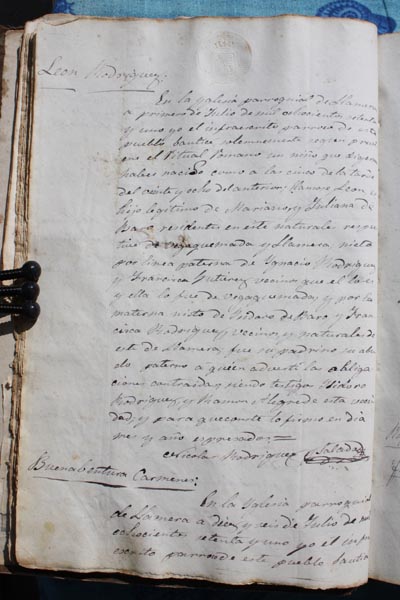 Leon Rodriguez.
En la Yglesia parroquial de Llamera
a primero de Julio de mil ochocientos setenta
y uno yo el infraescrito parroco de este
pueblo bautice solemnemente segun previ
ene el Ritual Romano un niño que dijeron
haber nacido como a las cinco de la tarde
del veinte y ocho del anterior llamose Leon es
hijo legitimo de Mariano y Juliana de
Baro residentes en este naturales respec
tive de Vegaquemada y Llamera, nieto
por linea paterna de Ygnacio Rodriguez
y Francisca Gutierrez vecino que el
y ella lo fue de vegaquemada, y por la
materna nieto de Ysidoro de Baro y Fran
cisca Rodriguez, vecinos, y naturales de
este de Llamera, fue su padrino su abue
lo paterno a quien adverti la obliga
ciones contraidas, siendo testigos Ysidoro
Rodriguez, y Ramon Alegre de esta vecin
dad, y para que conste lo firmo en dia
mes y año espresados =
Nicolas Rodriguez
Buenabentura Carmenes.
En la Yglesia parroquial
de Llamera a diez y seis de Julio de mil
ochocientos setenta y uno yo el infra
escrito parroco de este pueblo bautice